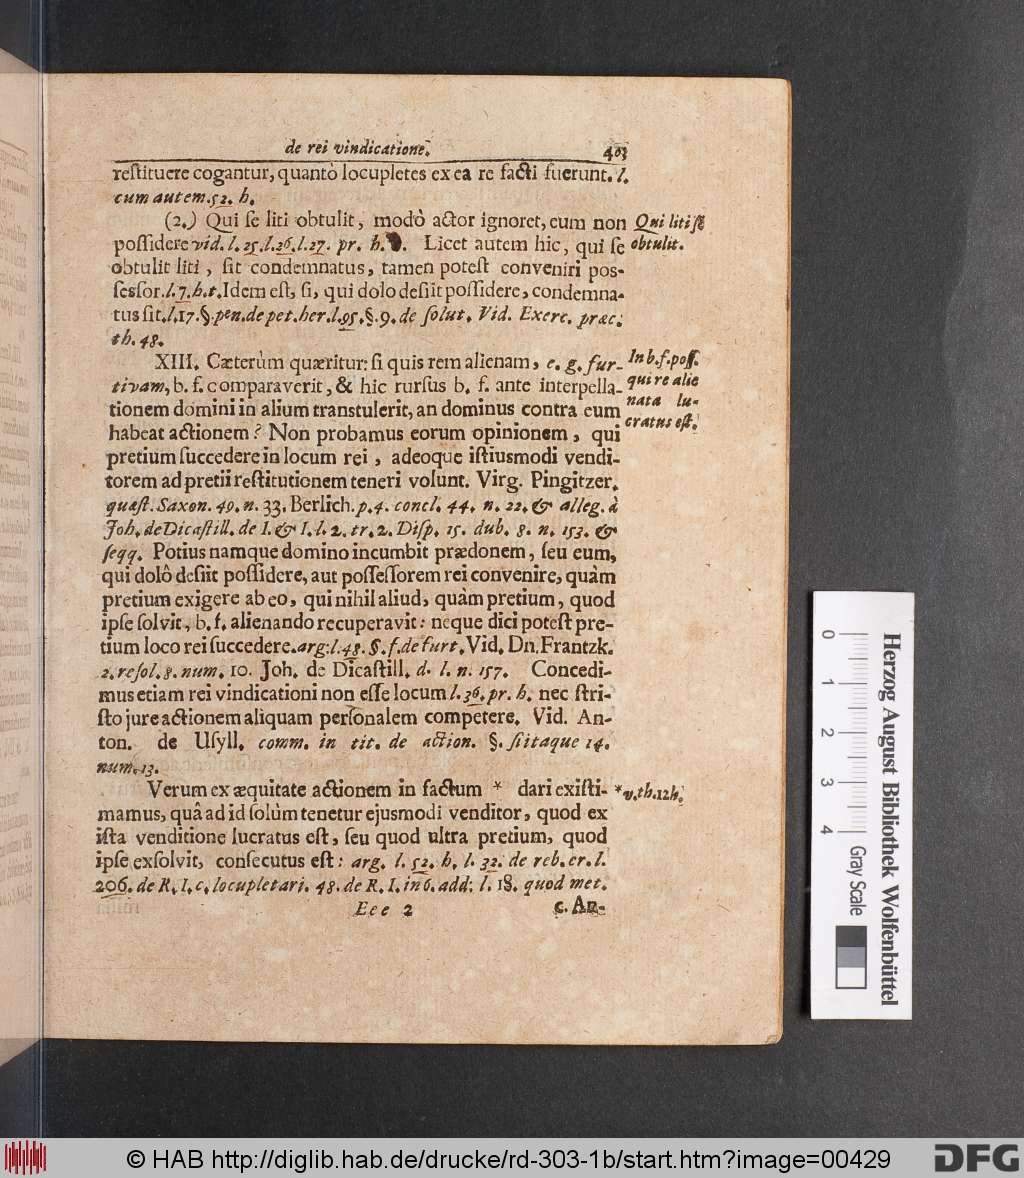 de rei vindicatione. 403
restituere cogantur, quantò locupletes ex ea re facti fuerunt. l.
cum autem. 52. h.
(2.) Qui se liti obtulit, modò actor ignoret, eum non
possidere vid. l. 25. l. 26. l. 27. pr. h. Licet autem hic, qui se
obtulit liti, sit condemnatus, tamen potest conveniri pos-
sessor. l. 7. h. t. Idem est, si, qui dolo desiit possidere, condemna-
tus sit. l. 17. §. pen. de pet. her. l. 95. §. 9. de solut. Vid. Exerc. præc.
th. 48.
Qui liti se
obtulit.
XIII. Cæterùm quæritur: si quis rem alienam, e. g. fur-
tivam, b. f. comparaverit, & hic rursus b. f. ante interpella-
tionem domini in alium transtulerit, an dominus contra eum
habeat actionem? Non probamus eorum opinionem, qui
pretium succedere in locum rei, adeoque istiusmodi vendi-
torem ad pretii restitutionem teneri volunt. Virg. Pingitzer.
quæst. Saxon. 49. n. 33. Berlich. p. 4. concl. 44. n. 22. & alleg. à
Joh. de Dicastill. de I. & I. l. 2. tr. 2. Disp. 15. dub. 8. n. 153. &
seqq. Potius namque domino incumbit prædonem, seu eum,
qui dolô desiit possidere, aut possessorem rei convenire, quàm
pretium exigere ab eo, qui nihil aliud, quàm pretium, quod
ipse solvit, b. f. alienando recuperavit: neque dici potest pre-
tium loco rei succedere. arg: l. 48. §. f. de furt. Vid. Dn. Frantzk.
2. resol. 8. num. 10. Joh. de Dicastill. d. l. n. 157. Concedi-
mus etiam rei vindicationi non esse locum l. 36. pr. h. nec stri-
cto jure actionem aliquam personalem competere. Vid. An-
ton. de Usyll. comm. in tit. de action. §. si itaque 14.
num. 13.
In b. f. poss.
qui re alie
nata lu-
cratus est.
Verum ex æquitate actionem in factum * dari existi-
mamus, quâ ad id solùm tenetur ejusmodi venditor, quod ex
ista venditione lucratus est, seu quod ultra pretium, quod
ipse exsolvit, consecutus est: arg. l. 52. h. l. 32. de reb. cr. l.
206. de R. I. c. locupletari. 48. de R. I. in 6. add: l. 18. quod met.
* v. th. 12 h.
Eee 2 c. An-
0 1 2 3 4
Gray Scale
Herzog August Bibliothek Wolfenbüttel
© HAB http://diglib.hab.de/drucke/rd-303-1b/start.htm?image=00429
DFG